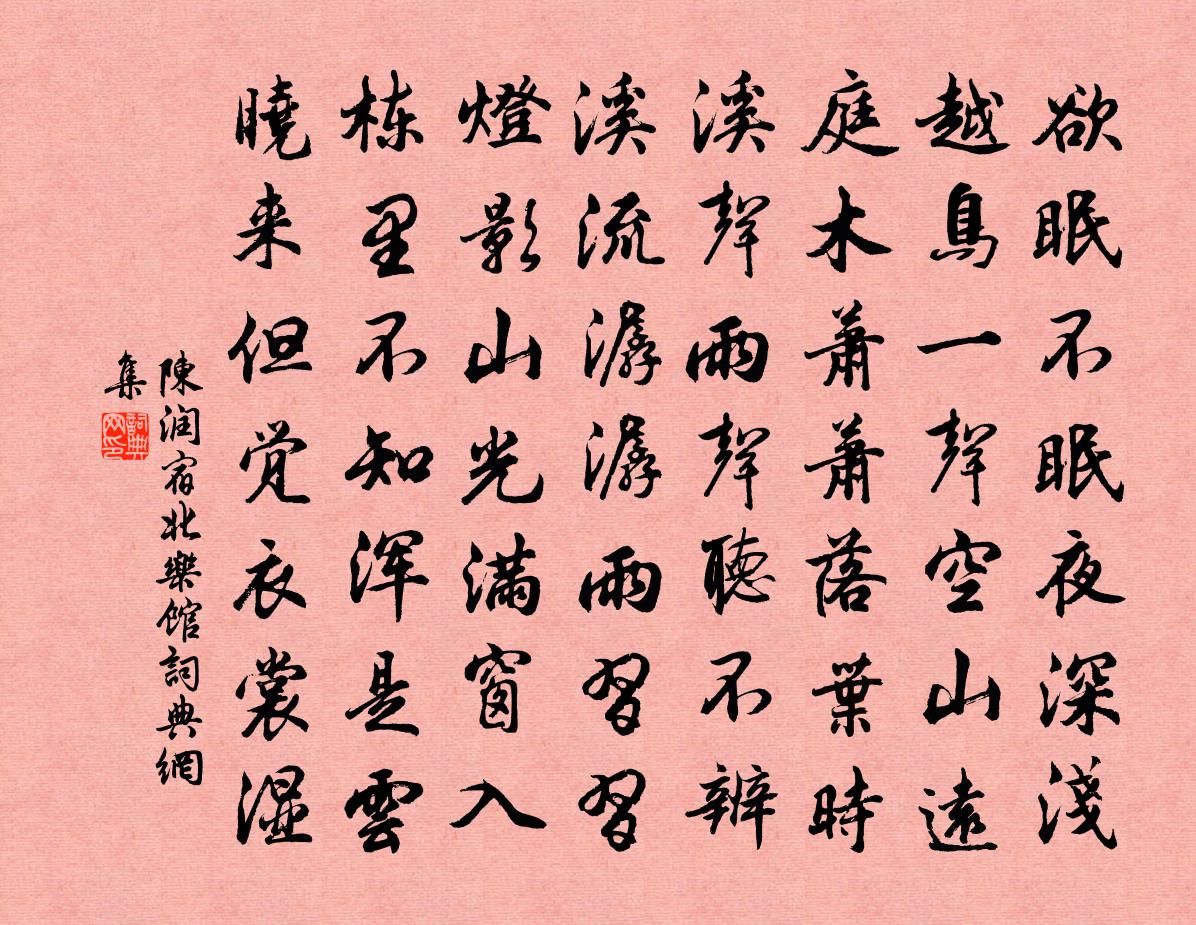 欲眠不眠夜深淺
越鳥一聲空山遠
庭木蕭蕭落葉時
溪聲雨聲聽不辨
溪流潺潺雨習習
燈影山光滿窗入
栋里不知浑是雲
曉来但觉衣裳湿
陳润宿北樂館詞典網
集
詞典网印